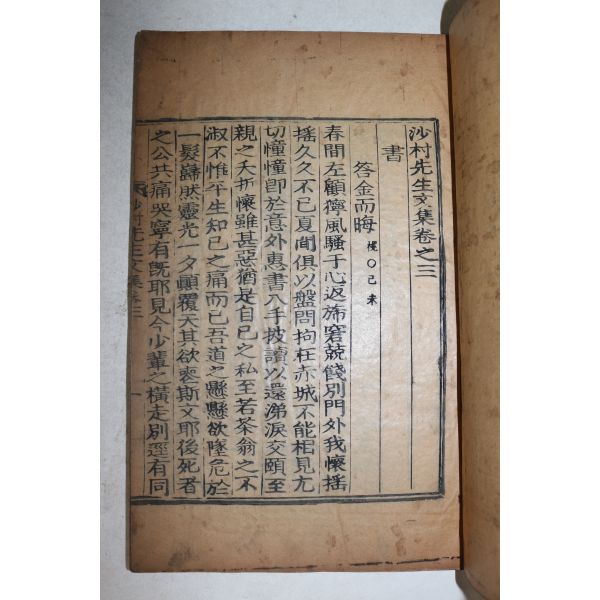 沙村先生文集卷之三
書
答金而晦 梶○己未
春間左顧獰風騷于心返旆窘兢餞別門外我懷搖
搖久久不已夏間俱以盤問拘枉赤城不能相見尤
切憧憧卽於意外惠書入手披讀以還涕淚交頤至
親之夭折懷雖甚惡猶是自已之私至若茶翁之不
淑不惟平生知已之痛而已吾道之懸懸欲墜危於
一髮巋然靈光一夕顚覆天其欲喪斯文耶後死者
之公共痛哭寧有旣耶見今少輩之橫走別逕有同
沙村先生文集卷三 一